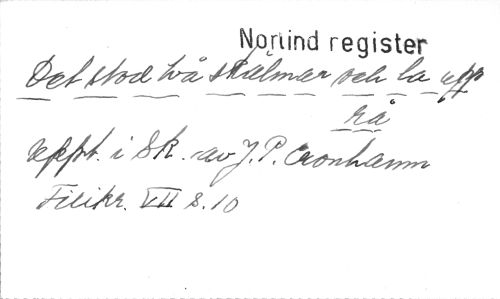 Norlind register
Det stod två skälmar och la upp
rå
uppt. i Sk. av J. P. Cronhamn
Filikr. VII s. 10